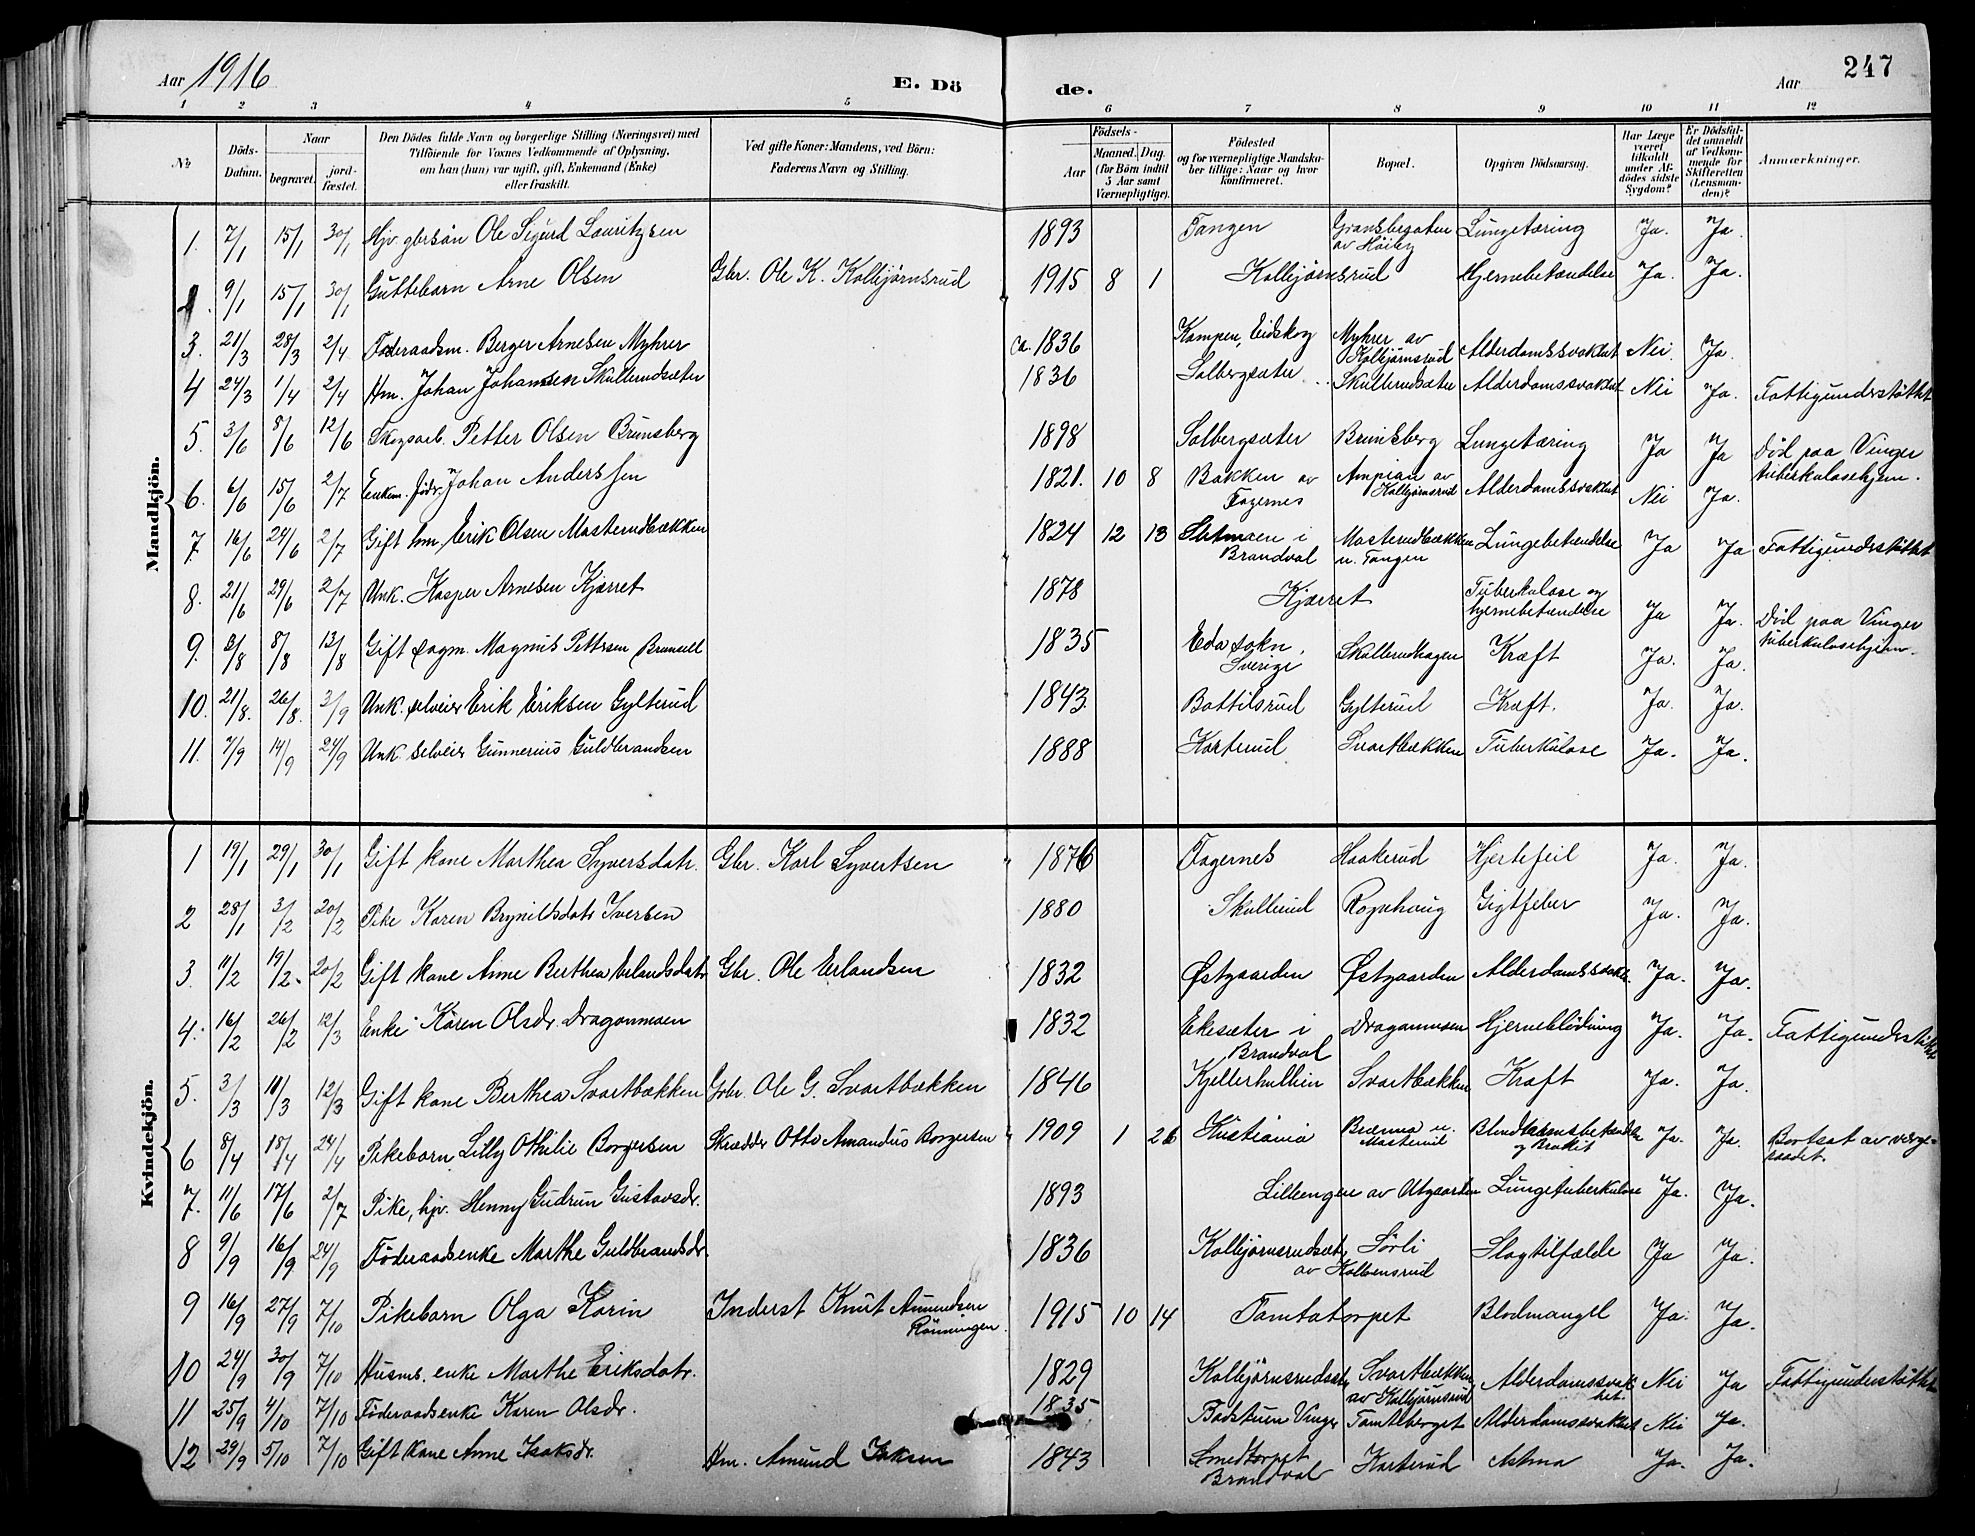 Aar 1916 E. Dö de. Aar 247
1 2 3 4 5 6 7 8 9 10 11 12
No
Döds-Datum.
Naar
begravet.
jord-fæstet.
Den Dödes fulde Navn og borgerlige Stilling (Næringsvei) med
Tilföiende for Voxnes Vedkommende af Oplysning,
om han (hun) var ugift, gift, Enkemand (Enke)
eller fraskilt.
Ved gifte Koner: Mandens, ved Börn:
Faderens Navn og Stilling.
Födsels-
Aar
Maaned. Dag.
(for Börn indtil
5 Aar samt
Værnepligtige).
Födested
og for værnepligtige Mandska-
ber tillige: Naar og hvor
konfirmeret.
Bopæl.
Opgiven Dödsaarsag.
Har Læge
været
tilkaldt
under Af-
dödes sidste
Sygdom?
Er Dödsfal-
det anmeldt
af Vedkom-
mende for
Skifteretten
(Lensman-
den)?
Anmærkninger.
Mandkjön.
1. 7/1 15/1 30/1 Hjv. gbrsön Ole Sigurd Lauritzsen 1893 Tangen Gransbergsaten av Höiby Lungetæring Ja. Ja.
2. 9/1 15/1 30/1 Guttebarn Arne Olsen Gbr. Ole K. Kolbjørnsrud 1915 8 1 Kolbjørnsrud Hjernebetændelse Ja. Ja.
3. 21/3 28/3 2/4 Føderaadsm. Berger Arnesen Myhrer ca. 1836 Kampen, Eidskog Myhrer av Kolbjørnsrud Alderdomssvakhet Nei Ja
4 24/3 1/4 2/4 Hm. Johan Johansen Skullerudsæter 1836 Solbergsæter Skullerudsæter Alderdomssvakhet Nei Ja. Fattigunderstøttet
5. 3/6 8/6 12/6 Skogsarb. Petter Olsen Brunsberg 1898 Solbergsæter Brunsberg Lungetæring Ja Ja Död paa Vinger tuberkulosehjem.
6. 6/6 15/6 2/7 Enkem. föder. Johan Anderssen 1821. 10 8 Bakken av Fagernes Ampian av Kolbjørnsrud Alderdomssvakhet Nei Ja.
7. 16/6 24/6 2/7 Gift hm. Erik Olsen Masterudbækken 1824 12 13 Sletmoen i Brandval Masterudbækken u. Tangen Lungebetændelse Ja Ja Fattigunderstøttet
8. 21/6 29/6 2/7 Unk. Kasper Arnesen Kjærret 1878 Kjærret Tuberkulose og hjernebetændelse Ja Ja. Död paa Vinger tuberkulosehjem.
9. 3/8 8/8 13/8 Gift dagm. Magnus Pettersen Brunsell 1835 Eda sokn, Sverige Skullerudhagen Kræft Ja. Ja.
10. 21/8. 26/8. 3/9 Unk. selveier Erik Eriksen Gylterud 1843. Bottilsrud Gylterud Kræft. Ja. Ja.
11. 7/9 14/9 24/9 Unk. selveier Gunnerius Guldbrandsen 1888 Karterud Svartbækken Tuberkulose Ja. Ja.
Kvindekjön.
1 19/1 29/1 30/1 Gift kone Marthea Syversdatr. Gbr. Karl Syvertsen 1876 Fagernes Haakerud Hjertefeil Ja. Ja.
2 28/1 3/2 20/2 Pike Karen Brynildsdatr Iversen 1880 Skullerud Rognhaug Gigtfeber Ja. Ja.
3. 11/2 19/2. 20/2 Gift kone Anne Berthea Erlandsdatr Gbr. Ole Erlandsen 1832 Østgaarden Østgaarden Alderdomssvakhet. Ja. Ja.
4. 16/2 26/2 12/3 Enke Karen Olsdr. Dragonmoen 1832 Ekesæter i Brandval Dragonmoen Hjerneblödning Ja. Ja. Fattigunderstøttet
5. 3/3 11/3 12/3 Gift kone Berthea Svartbækken Gbr. Ole G. Svartbækken 1846 Kjellerhullien Svartbækken Kræft Ja. Ja.
6 8/4 18/4 24/4 Pikebarn Lilly Othilie Borgersen Skrædder Otto Amandus Borgersen 1909 1 26 Kristiania u. Masterud Ja. Ja. Bortsat av verge-raadet.
7. 11/6 17/6 2/7 Pike, hjv. Henny Gudrun Gustavsdr. 1893 Lillengen av Utgaarden Lungetuberkulose Ja. Ja.
8 9/9 16/9 24/9 Føderaadsenke Marthe Guldbrandsdr. 1836 Kolbjørnsrudsæt. Sörli av Kolbensrud Slagtilfælde Ja Ja.
9 16/9 27/9 7/10 Pikebarn Olga Karin Inderst Knut Amundsen Rönningen. 1915 10 14 Tomtatorpet Blodmangel Ja. Ja.
10 24/9 30/9 7/10 Husms. enke Marthe Eriksdatr. 1829 Kolbjørnsrudsæt. Svartbækken av Kolbjørnsrud Alderdomssvakhet. Nei Ja Fattigunderstøttet
11 25/9 4/10 7/10 Føderaadsenke Karen Olsdr. 1835 Badstuen Vinger Tomtberget Alderdomssvakhet Nei Ja.
12 29/9 5/10 7/10 Gift kone Anne Isaksdr. Hm. Amund Isaksen 1843 Smedtorpet Brandval Karterud Astma Ja. Ja.